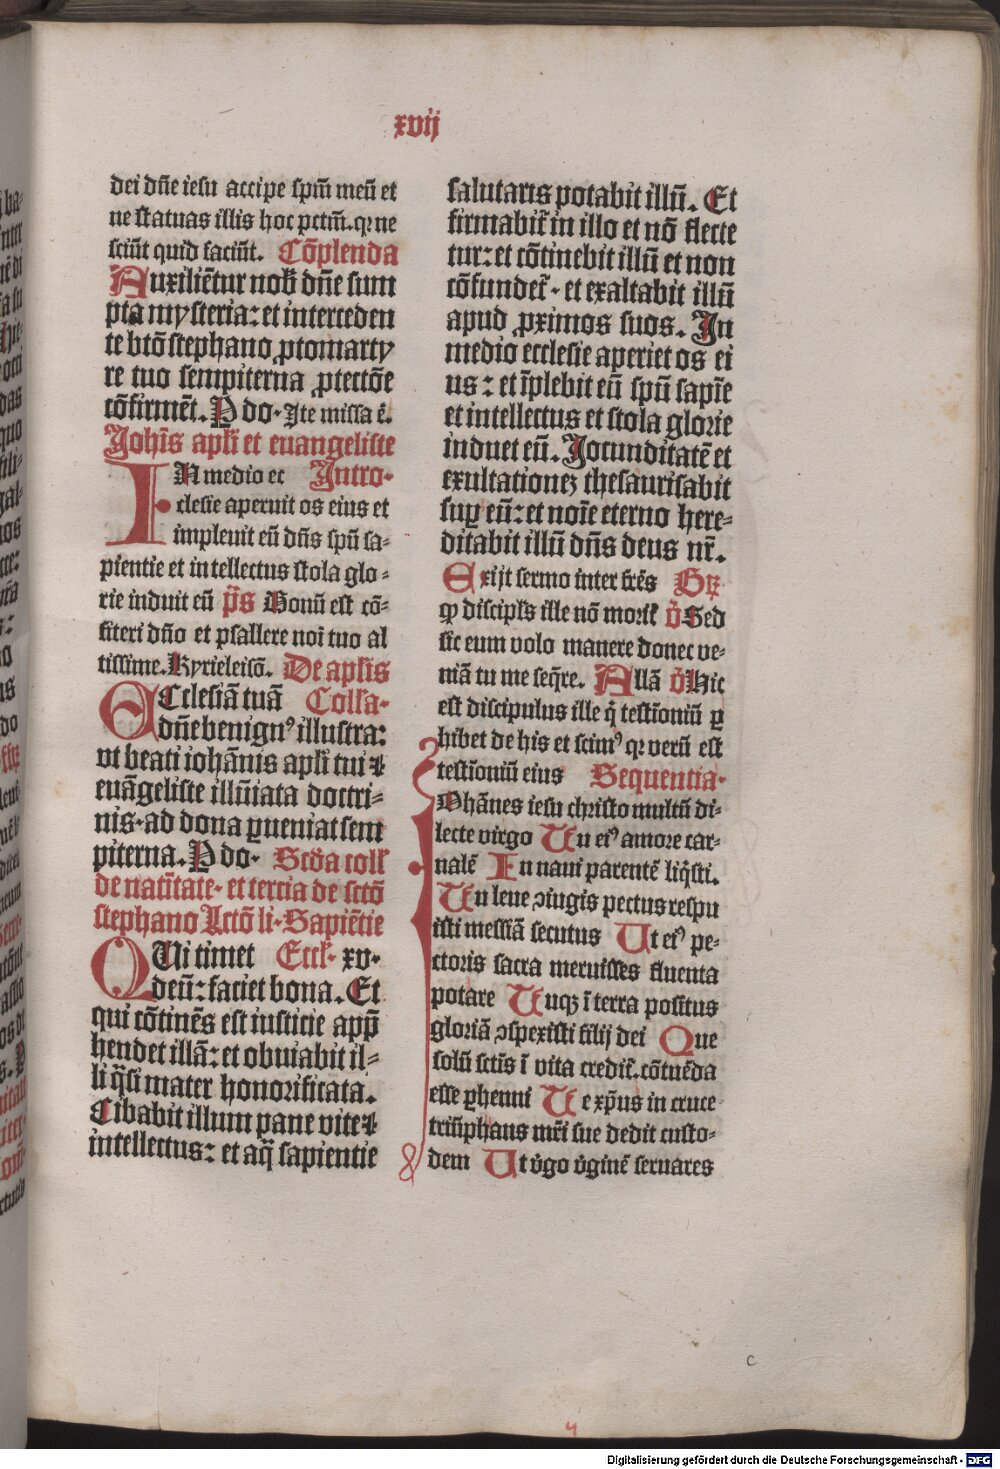 xvij
dei dñe iesu accipe spm̃ meũ et
ne statuas illis hoc pctm̃. qꝛ ne
sciũt quid faciũt. Cõplenda
Auxiliẽtur nob̃ dñe sum
pta mysteria: et interceden
te btõ stephano ꝓtomarty
re tuo sempiterna ꝓtectõe
cõfirmẽt. P do. Ite missa ẽ.
Johĩs apli et euangeliste
IN medio ec Intro.
clesie aperuit os eius et
impleuit eũ dñs spũ sa-
pientie et intellectus stola glo-
rie induit eũ p̃s Bonũ est cõ-
fiteri dño et psallere noĩ tuo al
tissime. Kyrieleisõ. De aplis
ECclesiã tuã Colla.
dñe benignꝰ illustra:
vt beati iohãnis apli tui ⁊
euãgeliste illũiata doctri-
nis. ad dona ꝑueniat sem
piterna. P do. Scđa coll
de natĩtate. et tercia de sctõ
stephano Lctõ li. Sapiẽtie
QUi timet Eccl. xv.
deũ: faciet bona. Et
qui cõtinẽs est iusticie app̃
hendet illã: et obuiabit il-
li q̃si mater honorificata.
Cibabit illum pane vite ⁊
intellectus: et aq̃ sapientie
salutaris potabit illũ. Et
firmabit̃ in illo et nõ flecte
tur: et cõtinebit illũ et non
cõfundet̃. et exaltabit illũ
apud ꝓximos suos. In
medio ecclesie aperiet os ei
us: et ĩplebit eũ spũ sapĩe
et intellectus et stola glorie
induet eũ. Jocunditatẽ et
exultationeꝫ thesaurisabit
suꝑ eũ: et noĩe eterno here-
ditabit illũ dñs deus nr̃.
Exijt sermo inter frẽs Gꝝ
ꝙ discipls ille nõ morit̃ v̊ Sed
sic eum volo manere donec ve-
niã tu me seq̃re. Allã v̊ Hic
est discipulus ille q̃ testĩoniũ ꝑ
hibet de his et scimꝰ qꝛ verũ est
testĩoniũ eius Sequentia.
Johãnes iesu christo multũ di-
lecte virgo Tu eiꝰ amore car-
nalẽ In naui parentẽ liq̃sti.
Tu leue ꝯiugis pectus respu
isti messiã secutus Ut eiꝰ pe-
ctoris sacra meruisses fluenta
potare Tuqꝫ ĩ terra positus
gloriã ꝯspexisti filij dei Que
solũ sctĩs ĩ vita credit̃. cõtuẽda
esse ꝑhenni Te xp̃us in cruce
triũphans mr̃i sue dedit custo-
dem Ut v̊go v̊ginẽ seruares
c
4
Digitalisierung gefördert durch die Deutsche Forschungsgemeinschaft - DFG